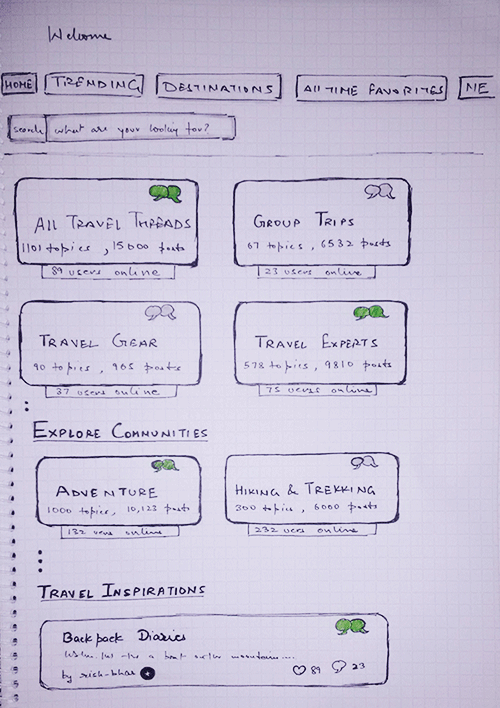 Welcome
HOME TRENDING DESTINATIONS All TIME FAVORITES ME
search what are your looking for?
All TRAVEL THREADS
1101 topics, 15000 posts
89 users online
GROUP TRIPS
67 topics, 6532 posts
23 users online
TRAVEL GEAR
90 topics, 965 posts
37 users online
TRAVEL EXPERTS
578 topics, 9810 posts
75 users online
EXPLORE COMMUNITIES
ADVENTURE
1000 topics, 10,123 posts
132 users online
HIKING & TREKKING
300 topics, 6000 posts
232 users online
TRAVEL INSPIRATIONS
Backpack Diaries
by
89 23